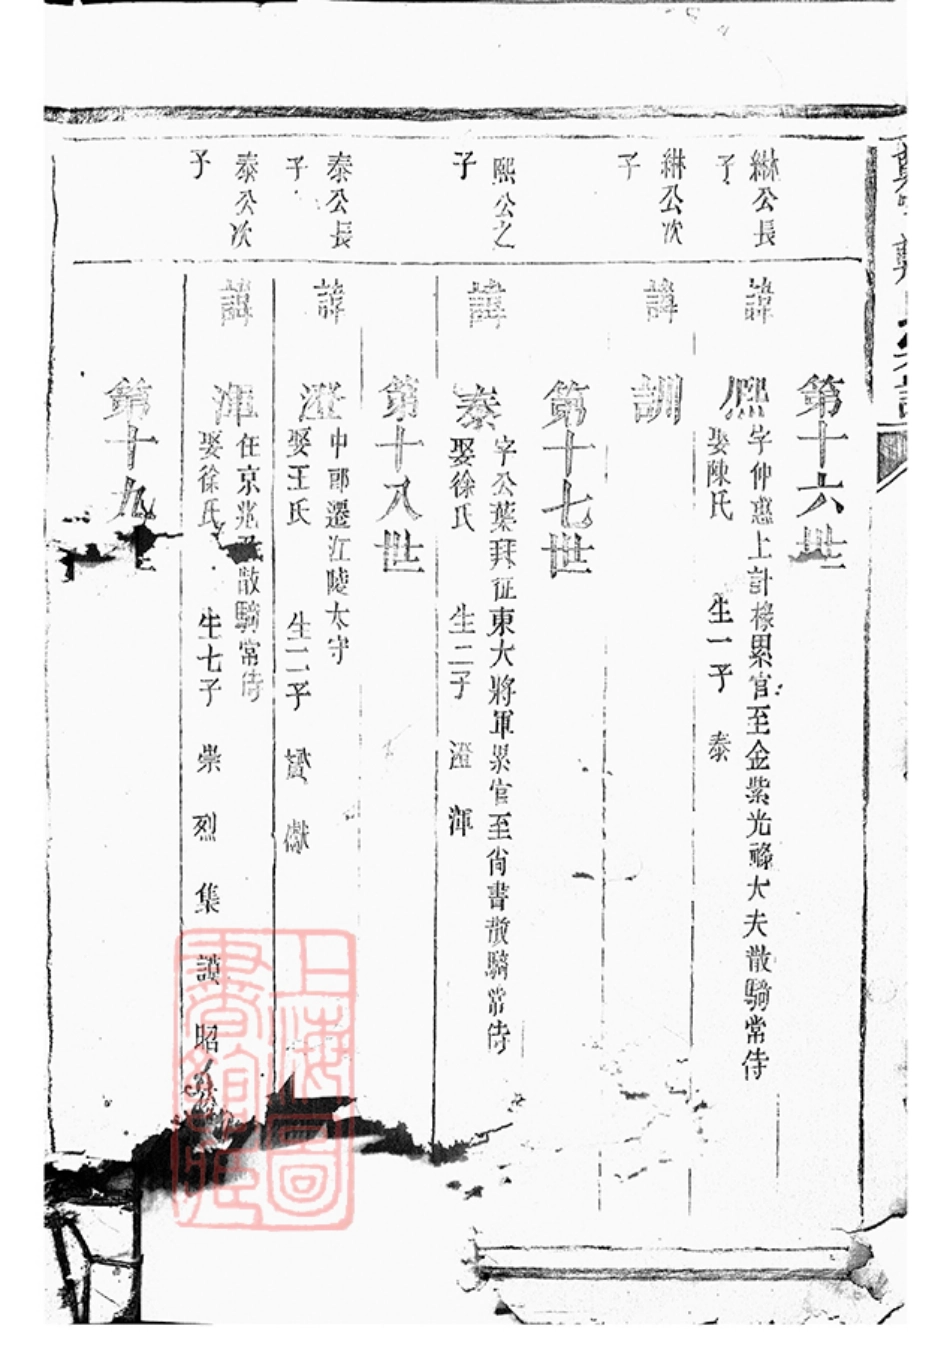 第十六世
綝公長子
諱熈
字仲惠上計椽累官至金紫光祿大夫散騎常侍
娶陳氏 生一子 泰
綝公次子
諱訓
第十七世
熈公之子
諱泰
字公葉拜征東大將軍累官至尙書散騎常侍
娶徐氏 生二子 澄 渾
第十八世
泰公長子
諱澄
中郎遷江陵太守
娶王氏 生二子 贇 獻
泰公次子
諱渾
任京兆 散騎常侍
娶徐氏 生七子 崇 烈 集 謨 昭
第十九
上海圖書館藏